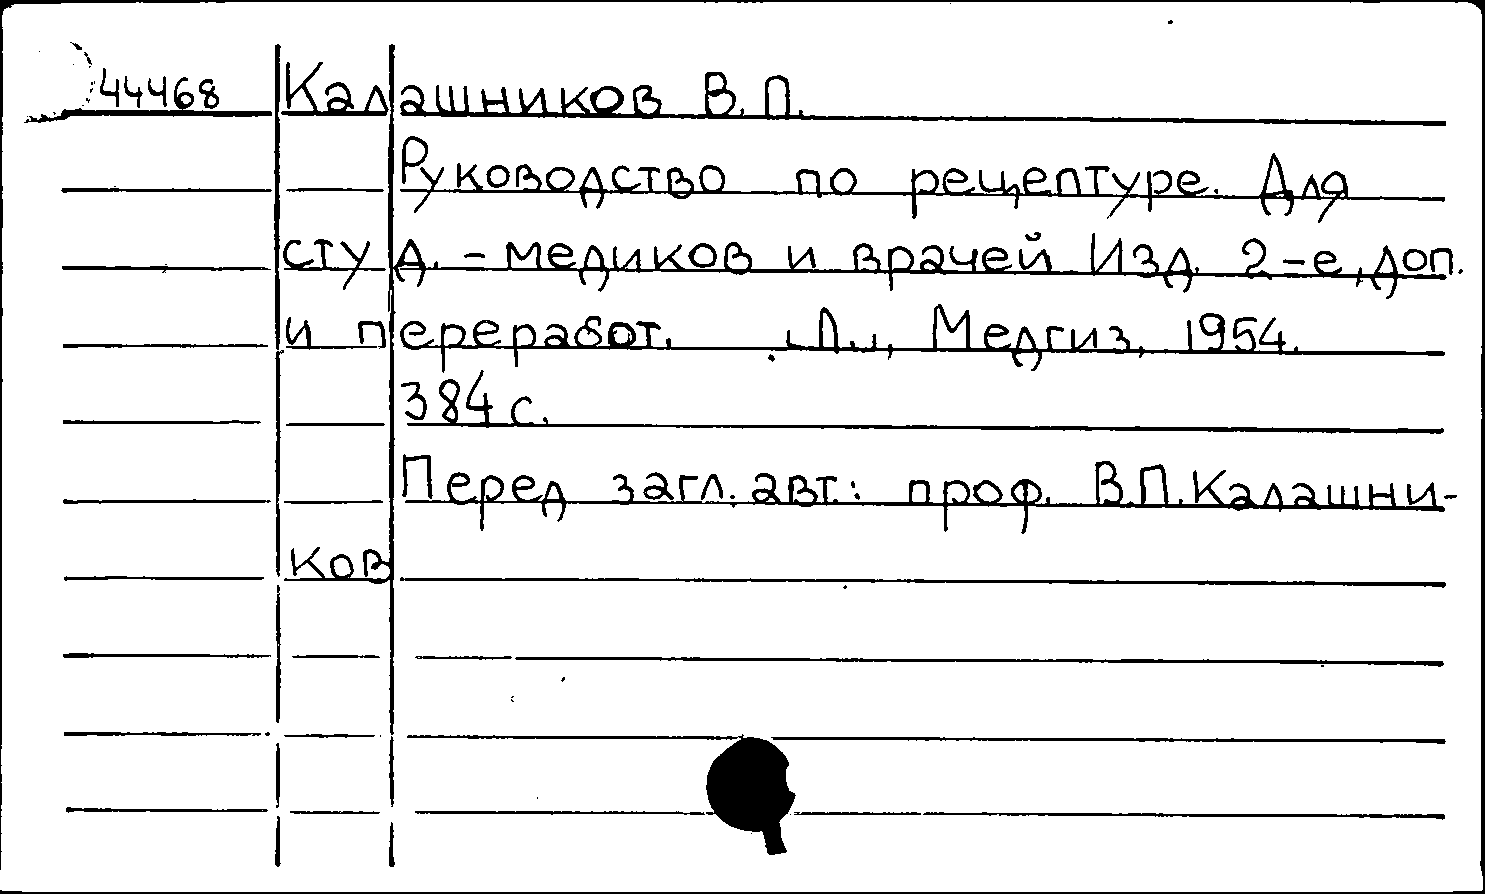 44468 Калашников В.П.
Руководство по рецептуре. Для
студ.-медиков и врачей Изд. 2-е, доп.
и переработ. Л., Медгиз, 1954.
384 с.
Перед загл. авт.: проф. В.П. Калашни-
ков